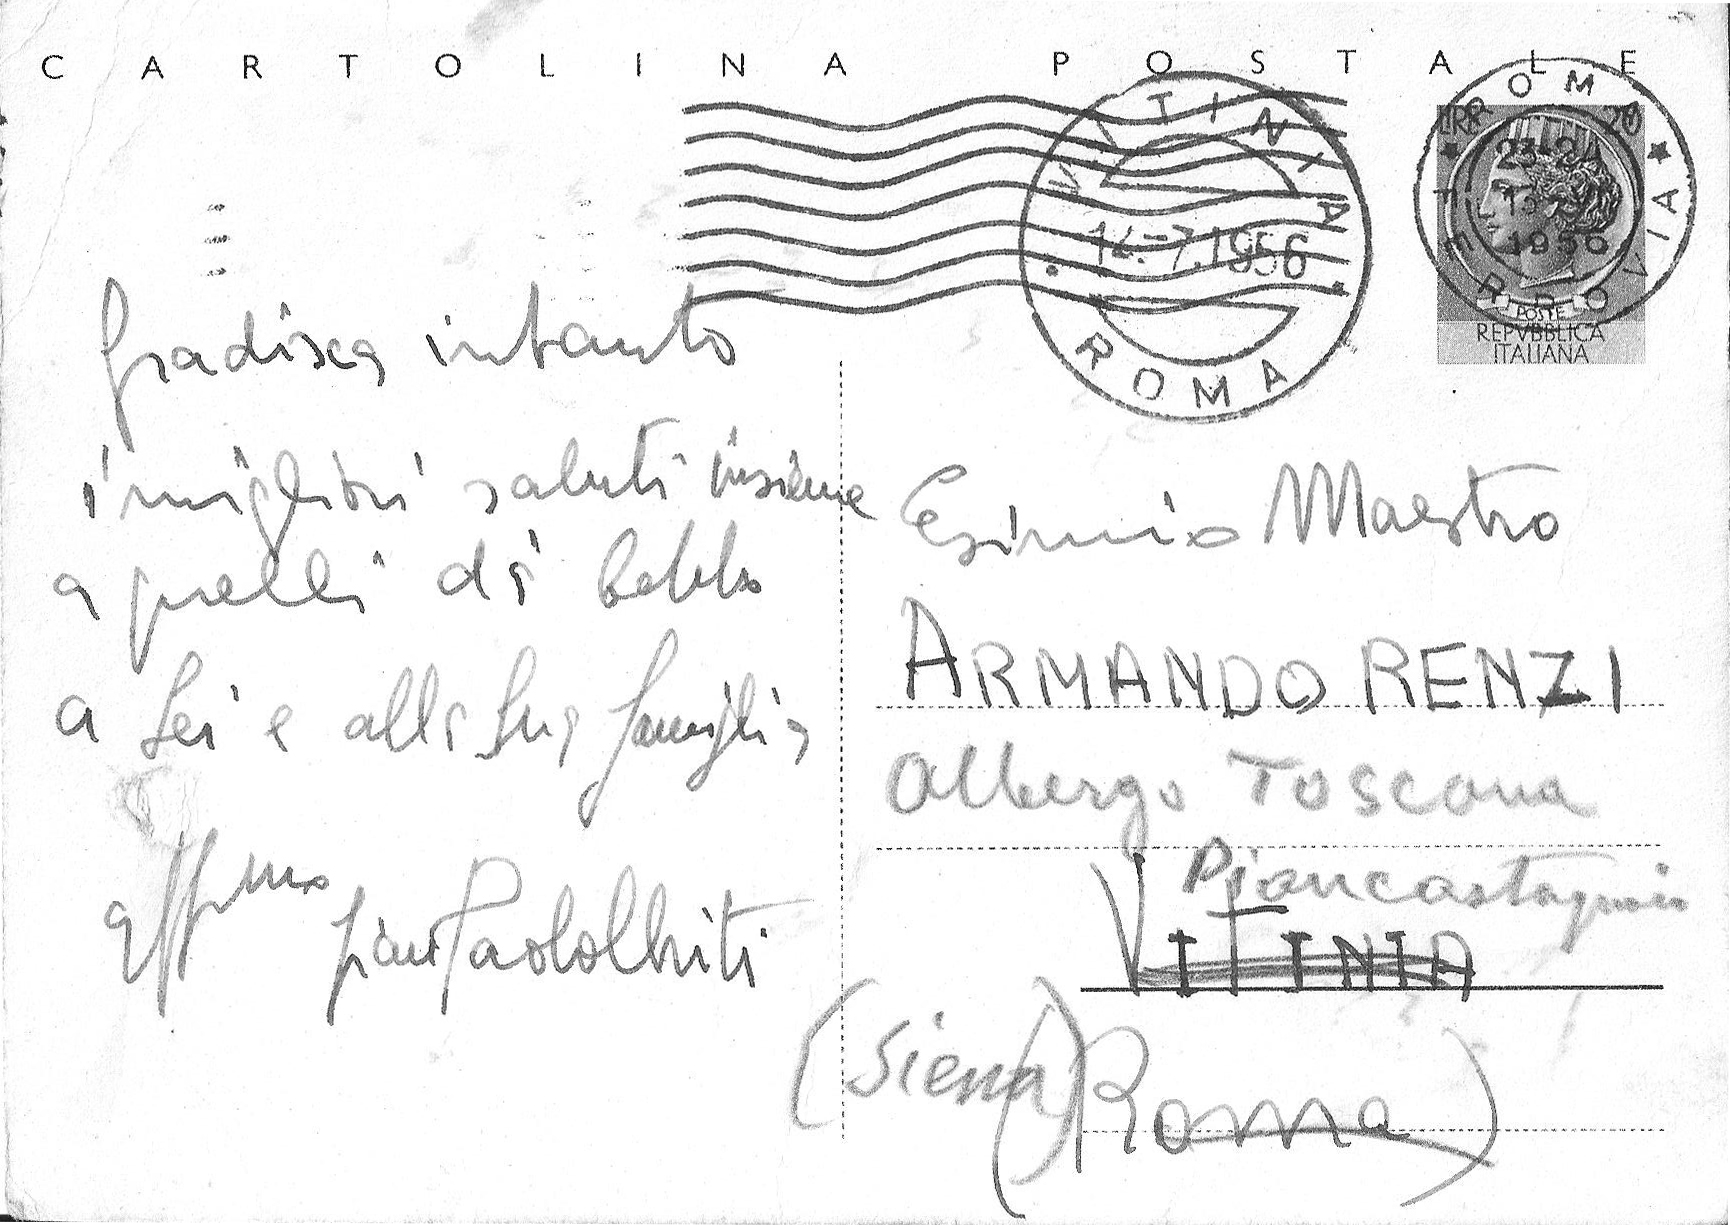 CARTOLINA POSTALE
VITINIA
14.-7.1956
ROMA
ROMA FERROVIA
LIRE 20
23-24
1956
POSTE
REPVBBLICA
ITALIANA
Gradisca intanto
i migliori saluti insieme
a quelli di babbo
a Lei e alla Sua famiglia
aff.mo
Esimio Maestro
ARMANDO RENZI
Albergo Toscana
Piancastagnaio
VITINIA
(Siena)
(Roma)